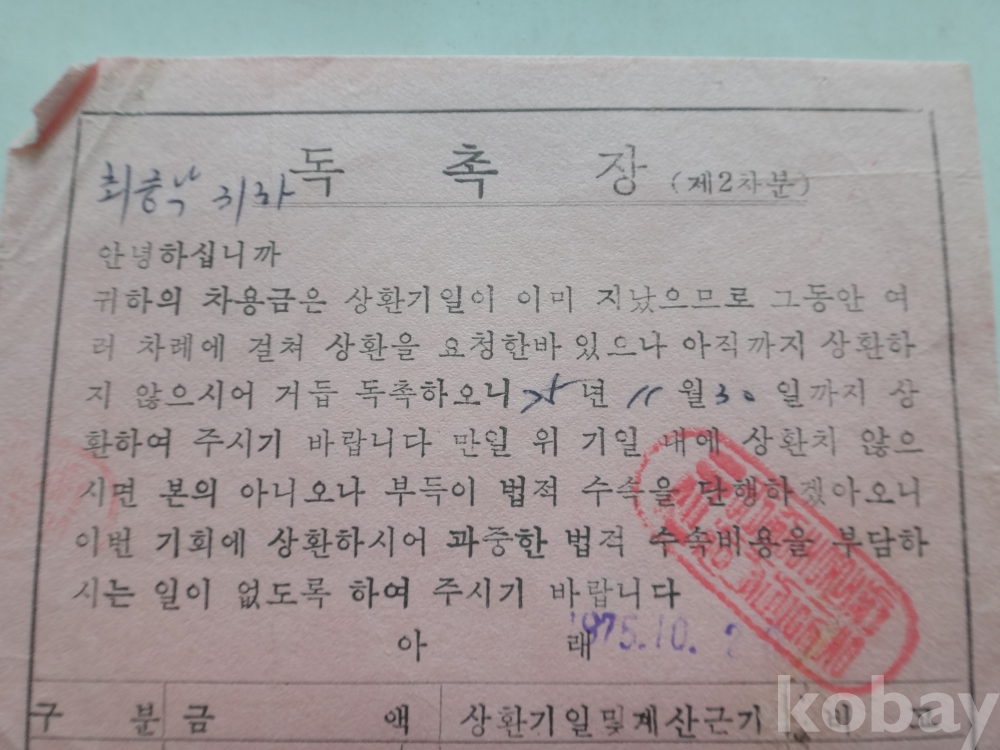 독촉장 (제2차분)
귀하
안녕하십니까
귀하의 차용금은 상환기일이 이미 지났으므로 그동안 여
러 차례에 걸쳐 상환을 요청한바 있으나 아직까지 상환하
지 않으시어 거듭 독촉하오니 년 11월 30일까지 상
환하여 주시기 바랍니다 만일 위 기일 내에 상환치 않으
시면 본의 아니오나 부득이 법적 수속을 단행하겠아오니
이번 기회에 상환하시어 과중한 법적 수속비용을 부담하
시는 일이 없도록 하여 주시기 바랍니다
아 래
1975.10.
구 분 금 액 상환기일및계산근기 비 고
kobay